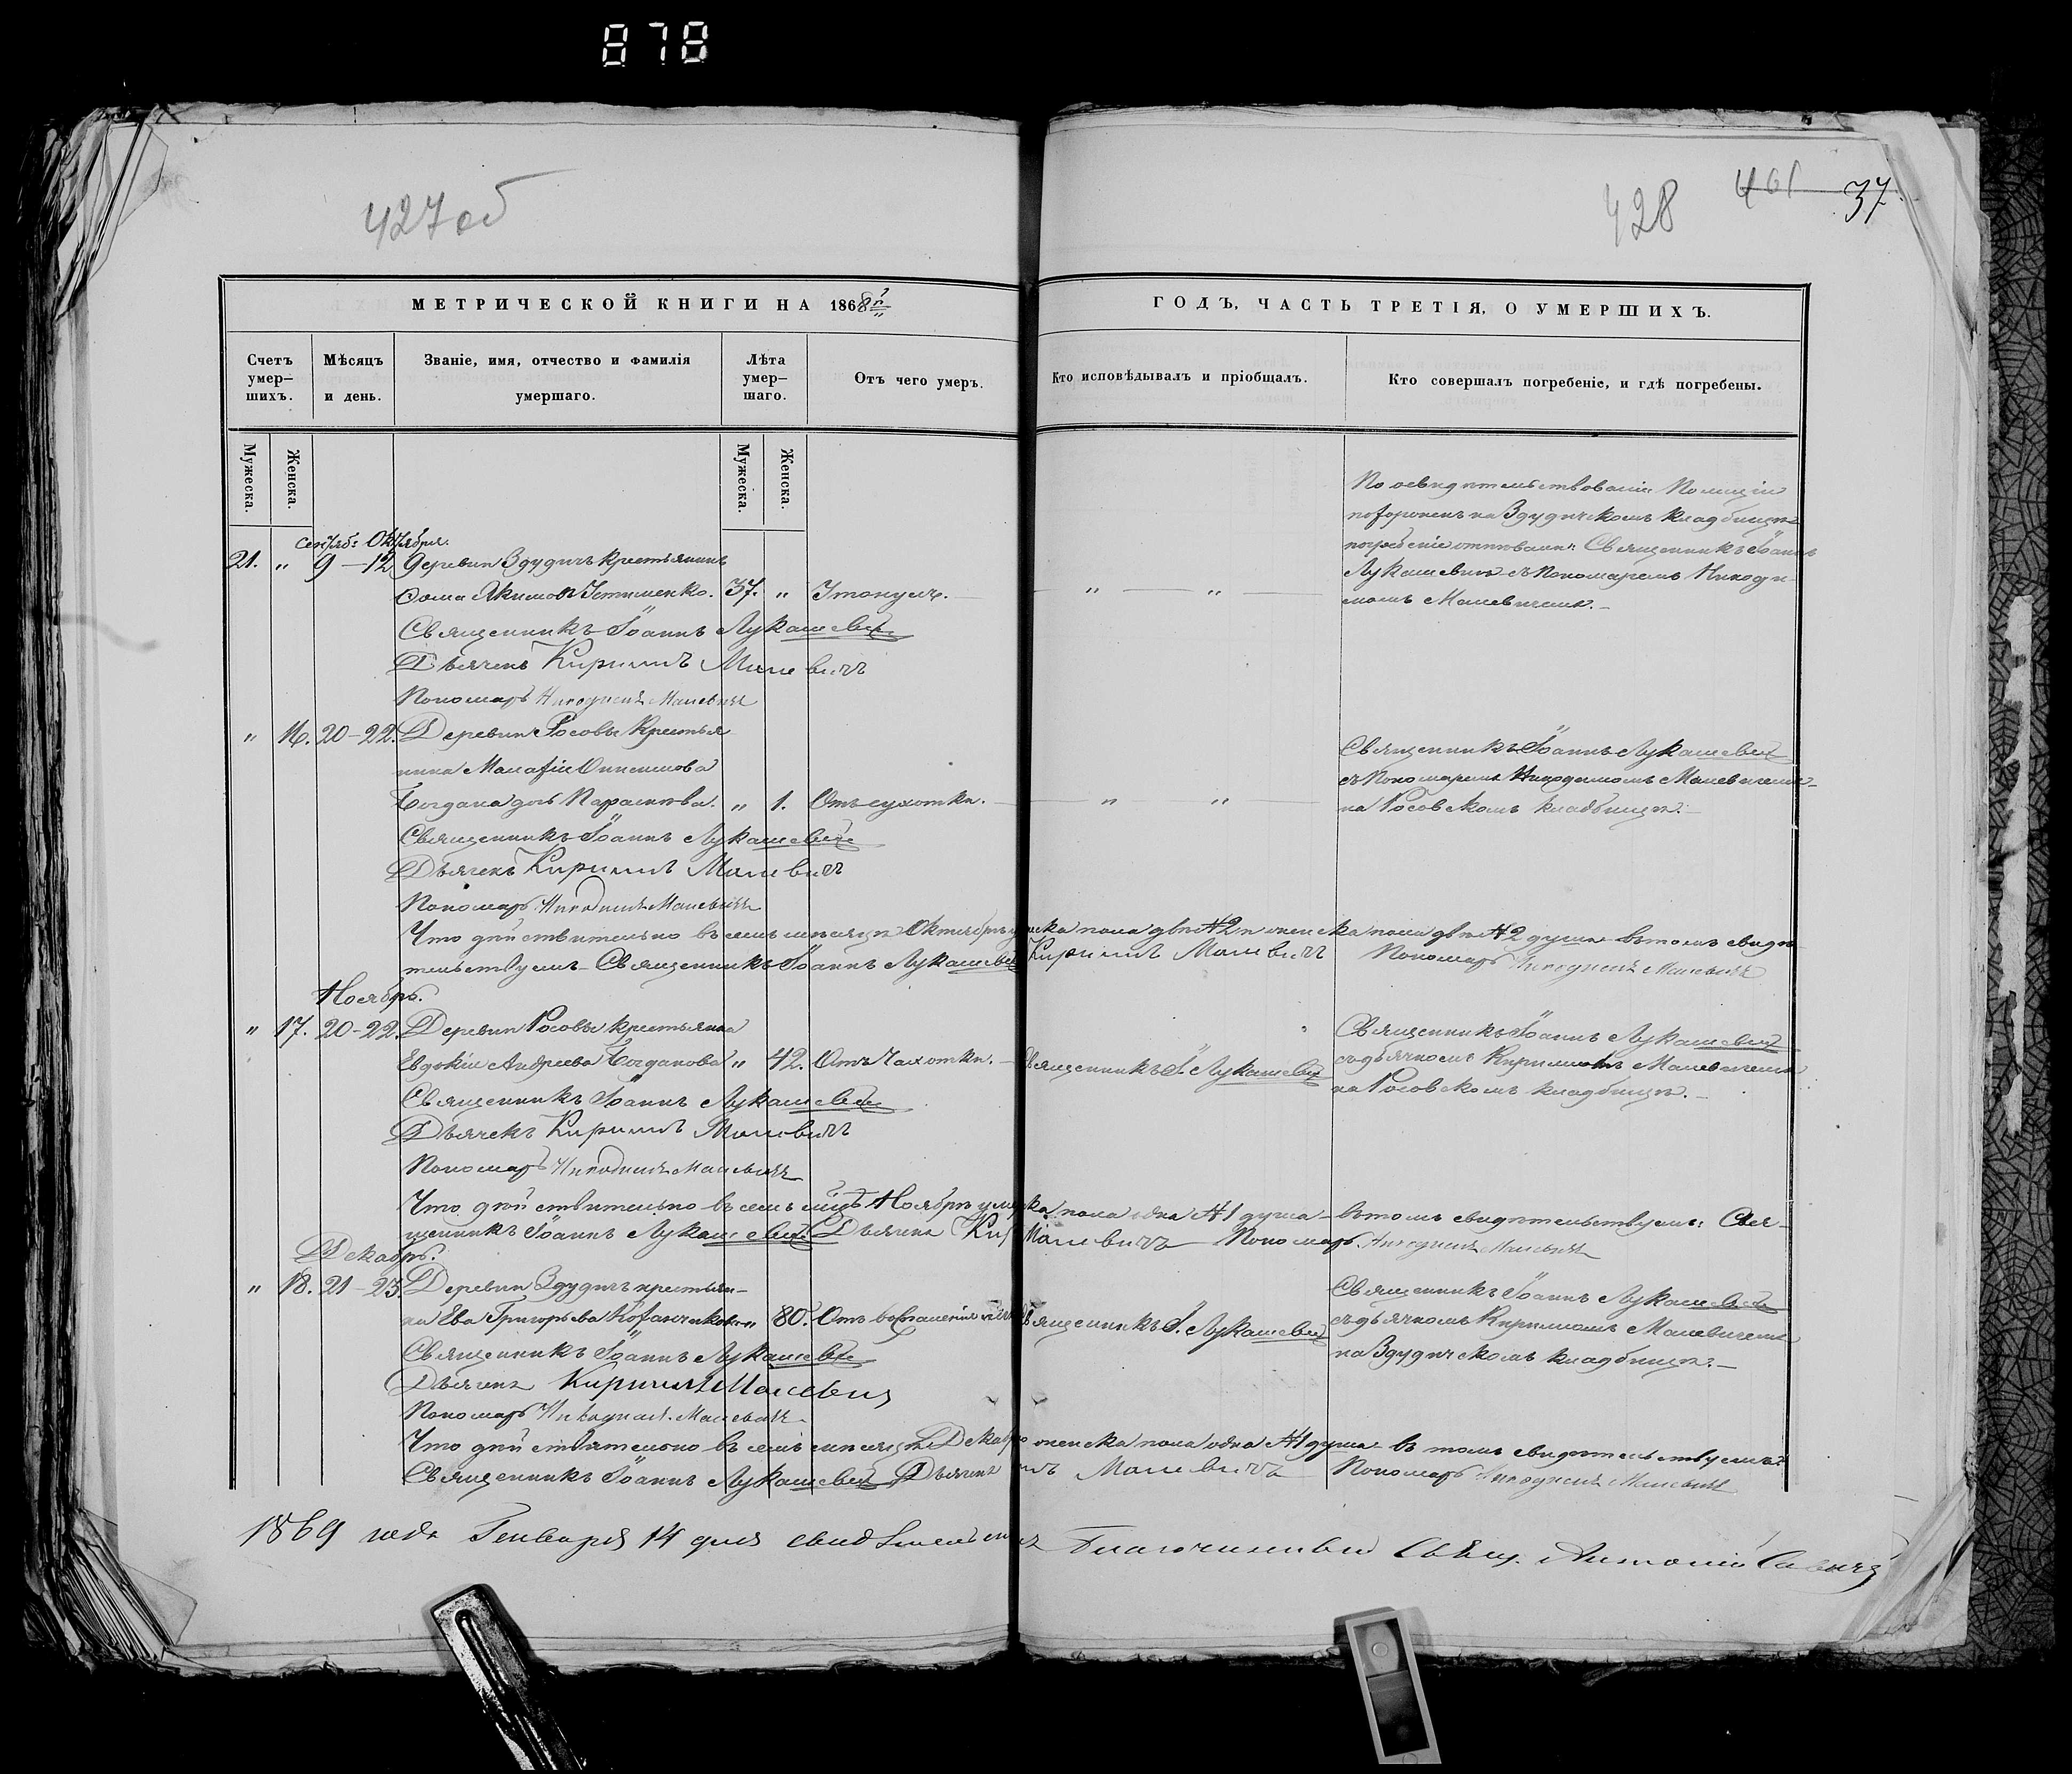 878
427 об
428 401 37
МЕТРИЧЕСКОЙ КНИГИ НА 1868й
ГОДЪ, ЧАСТЬ ТРЕТІЯ, О УМЕРШИХЪ.
Счетъ умер–шихъ.
Мѣсяцъ и день.
Званіе, имя, отчество и фамилія умершаго.
Лѣта умер–шаго.
Отъ чего умеръ.
Кто исповѣдывалъ и пріобщалъ.
Кто совершалъ погребеніе, и гдѣ погребены.
Мужеска.
Женска.
Мужеска.
Женска.
Сентяб: Октября.
21. „ 9–12 Деревни Здудичъ крестьянинъ
Фома Якимовъ 37. „ Утонулъ. „ „
По освидѣтельствованіи Полиціи
похороненъ на Здудичскомъ кладбищѣ
погребеніе отпѣвали: Священникъ Іоаннъ
Лукашевичъ съ Пономаремъ Никоди-
момъ Малевичемъ.
Священникъ Іоаннъ Лукашевичъ
Дьячекъ Кириллъ Малевичъ
Пономарь Никодимъ Малевичъ
„ 16. 20–22. Деревни Росовы Крестья
нина Малафіи Онисимова
Богдана дочь Параскева. „ 1. Отъ сухотки. „ „
Священникъ Іоаннъ Лукашевичъ
съ Пономаремъ Никодимомъ Малевичемъ
на Росовскомъ кладбищѣ.
Священникъ Іоаннъ Лукашевичъ
Дьячекъ Кириллъ Малевичъ
Пономарь Никодимъ Малевичъ
Что дѣйствительно въ семъ мѣсяцѣ Октябрѣ ска пола двѣ №2 и женска пола двѣ №2 души въ томъ свидѣ-
тельствуемъ Священникъ Іоаннъ Лукашевичъ Кириллъ Малевичъ Пономарь Никодимъ Малевичъ
Ноябрь.
„ 17. 20–22. Деревни Росовы крестьянка
Евдокія Андреева Богданова „ 42. Отъ Чахотки. Священникъ І. Лукашевичъ
Священникъ Іоаннъ Лукашевичъ
съ дьячкомъ Кирилломъ Малевичемъ
на Росовскомъ кладбищѣ.
Священникъ Іоаннъ Лукашевичъ
Дьячекъ Кириллъ Малевичъ
Пономарь Никодимъ Малевичъ
Что дѣйствительно въ семъ мцѣ Ноябрѣ ум ка пола одна №1 душа въ томъ свидѣтельствуемъ: Свя-
щенникъ Іоаннъ Лукашевичъ Дьячекъ Кир Малевичъ Пономарь Никодимъ Малевичъ
Декабрь.
„ 18. 21–23. Деревни Здудичъ крестьян-
ка Ева Григорьева „ 80. Отъ Священникъ І. Лукашевичъ
Священникъ Іоаннъ Лукашевичъ
съ дьячкомъ Кирилломъ Малевичемъ
на Здудичскомъ кладбищѣ.
Священникъ Іоаннъ Лукашевичъ
Дьячекъ Кириллъ Малевичъ
Пономарь Никодимъ Малевичъ
Что дѣйствительно въ семъ мѣсяцѣ Декабрѣ женска пола одна №1 душа въ томъ свидѣтельствуемъ
Священникъ Іоаннъ Лукашевичъ Дьячекъ лъ Малевичъ Пономарь Никодимъ Малевичъ
1869 года Генваря 14 дня Благочинный Свящ. Антоній Савичъ